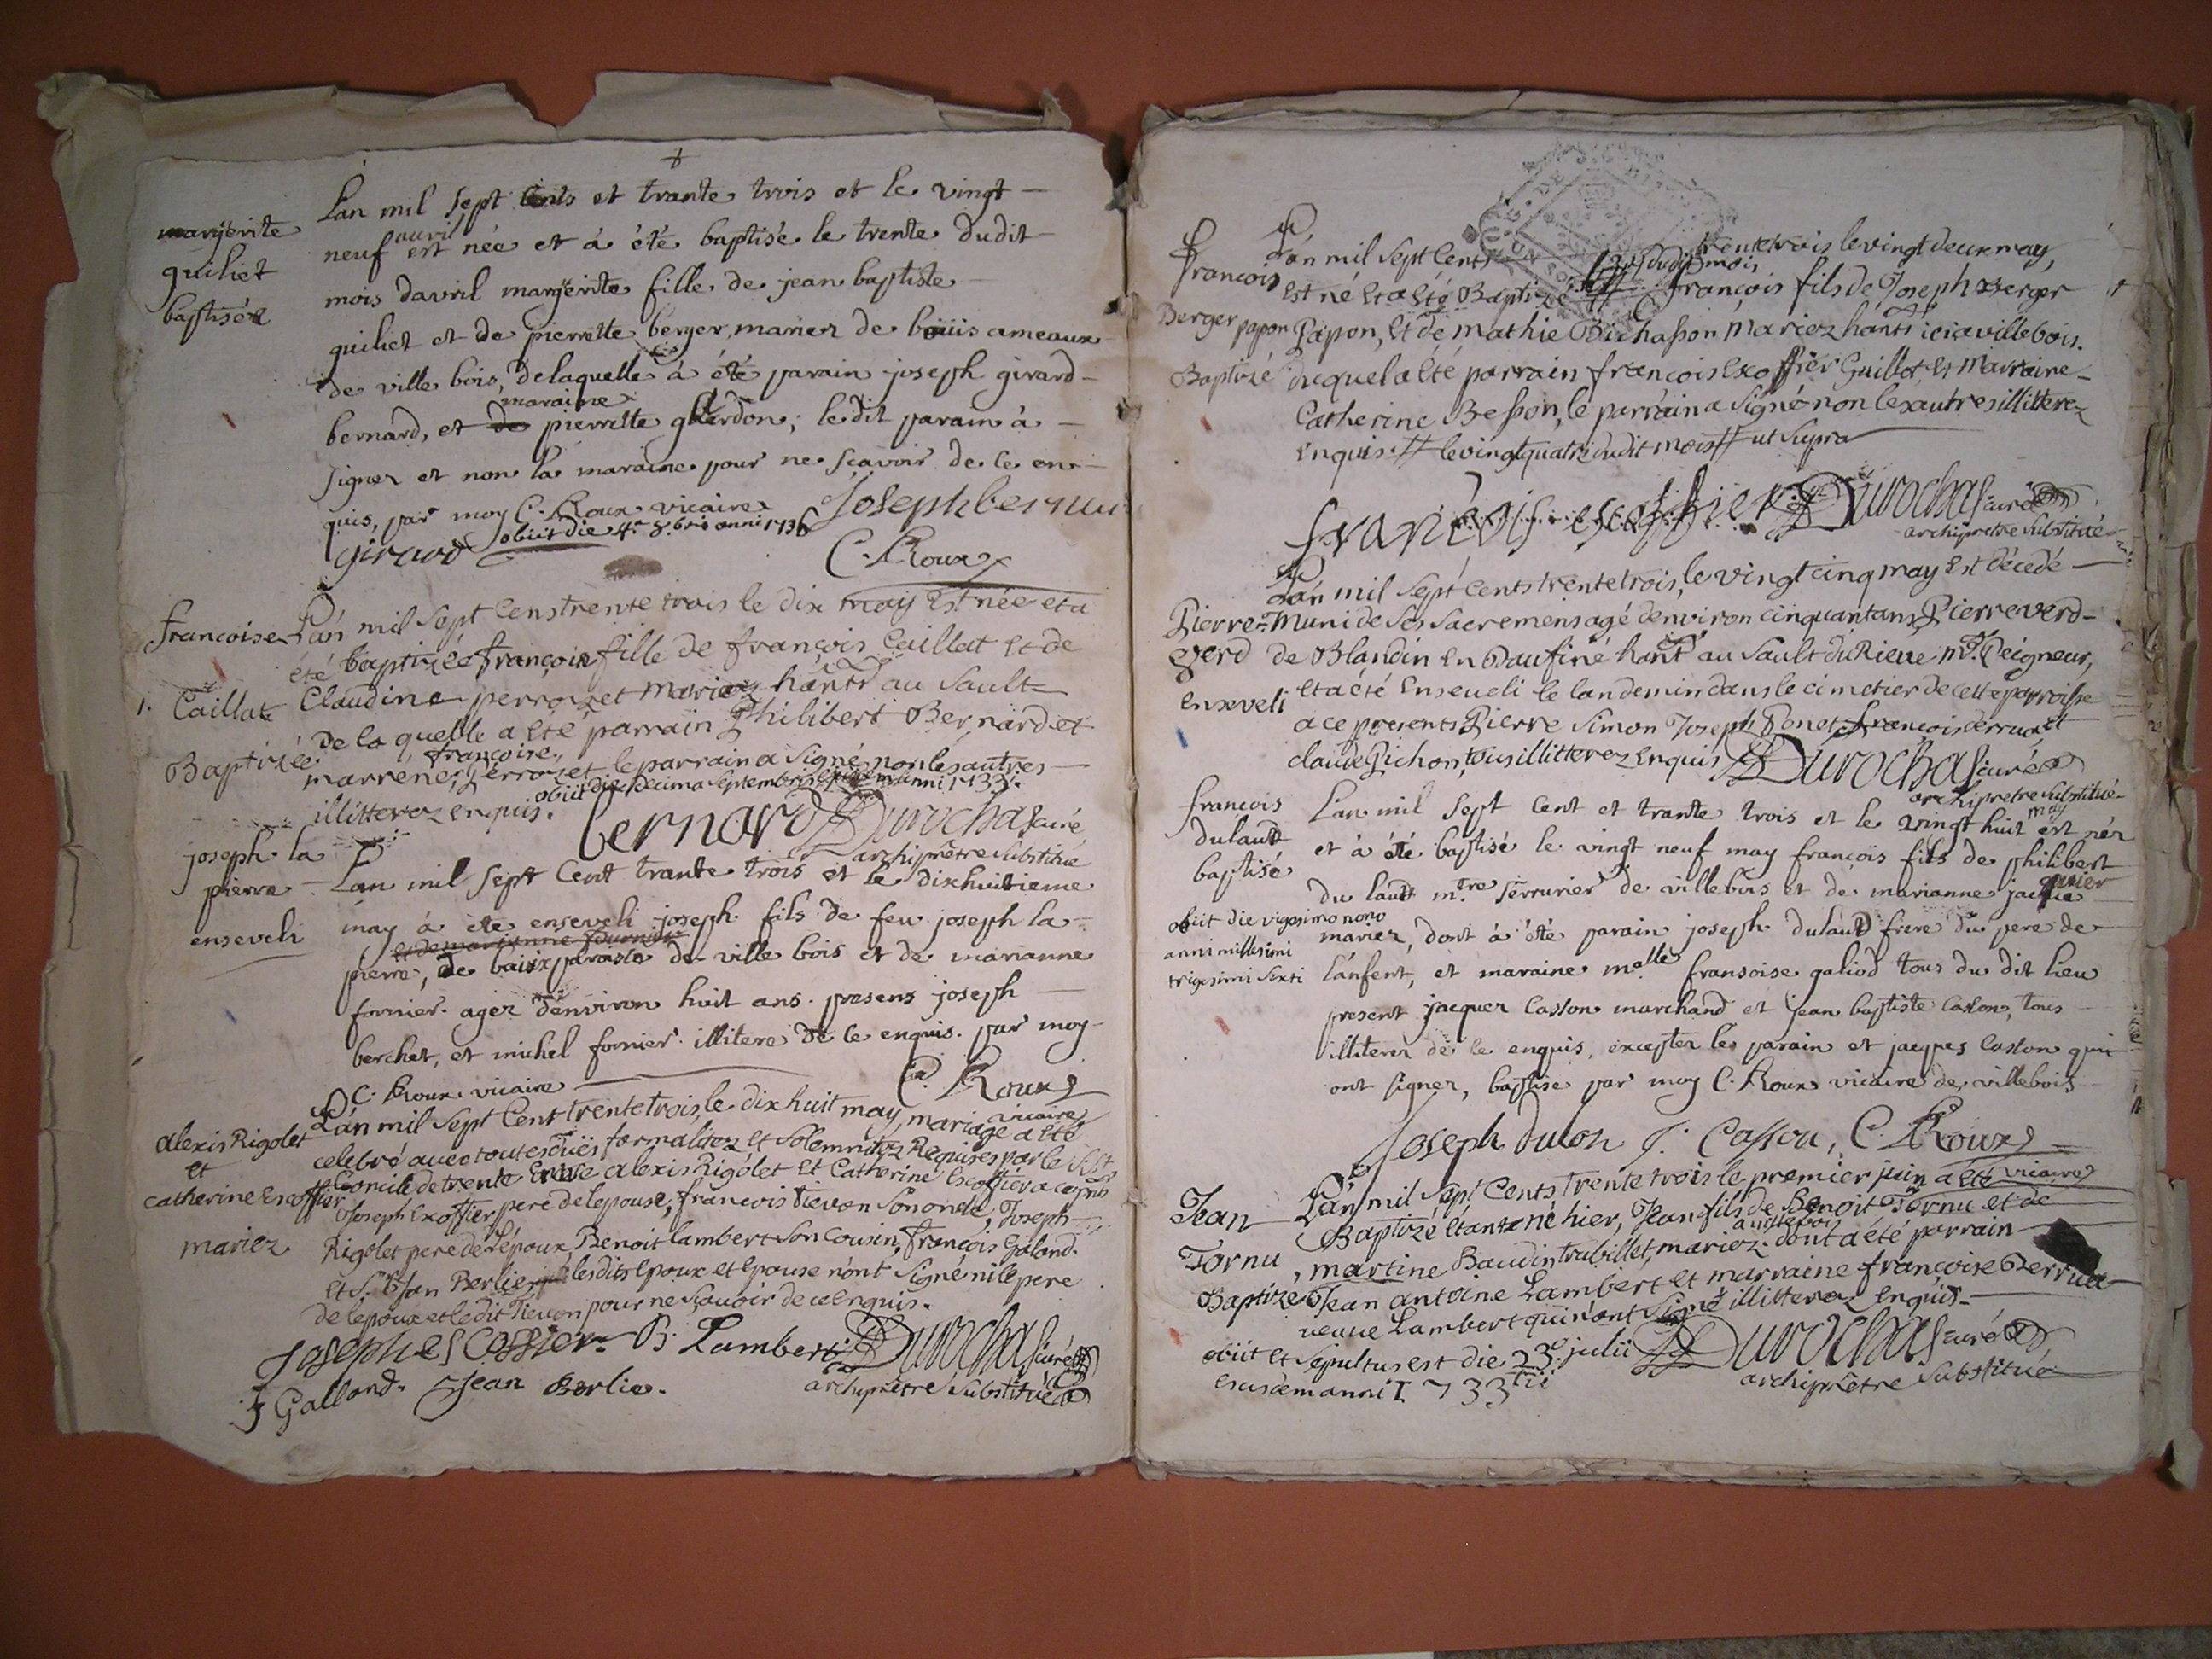 margerite
guiliet
baptiséz
Lan mil sept cents et trante trois et le vingt
neuf avril est née et à été baptisée le trente dudit
mois davril margerite fille de jean baptiste
guiliet et de pierrette berger mariez de boüis ameaux
de ville bois, de laquelle à été parain joseph girard
bernard, et maraine pierrette guerdon; le dit parain à
signer et non la maraine pour ne sçavoir de ce en-
quis, par moy C. Roux vicaire Joseph bernar
girard obiit die 4a 8bris anni 1736
C. Roux
francoise
Caillat
Baptizée
L'an mil sept Cens trente trois le dix may Est née et a
été baptizée françoise fille de françois Caillat Et de
Claudine perrozet Mariez hants au Sault
De la quelle a Eté parrain Philibert Bernard et
marrene françoise Perrozet le parrain a Signé non les autres
illitterez enquis. obiit die decima Septembris ejusdem anni 1733.
bernard Durochas curé
archiprêtre Substitué
joseph la
pierre
enseveli
Lan mil sept Cent trante trois et le dixhuitieme
may à été enseveli joseph fils de feu joseph la
pierre, de baüix paroisse de ville bois et de marianne
fornier. agez denviron huit ans. presens joseph
berchet, et michel fornier. illitere de le enquis. par moy
C. Roux vicaire C. Roux
vicaire
alexis Rigolet
et
catherine Escoffier
mariez
L'án mil sept Cent trente trois, le dix huit may, mariage a Eté
celebré avec toutes düës formalitez et Solemnitez Requises par le St
Concile de trente Entre alexis Rigolet Et Catherine Escoffier a ce pnts
Joseph Excoffier pere de lepouse, francois tievon Son oncle, Joseph
Rigolet pere de Lépoux, Benoit lambert Son Cousin, françois Galand.
Et Sr Jean Berlie, lesdits Epoux et Epouse n'ont Signé ni le pere
de lepoux et le dit Tievon pour ne Sçavoir de ce Enquis.
Joseph escoffier B. Lambert Durochas curé
f Galland. Jean Berlie. archiprêtre Substitué
francois
Berger papon
Baptizé
L'án mil Sept Cents trente trois le vingt deux may,
Est né Et a Eté Baptizé françois fils de Joseph Berger
Papon, Et de Mathie Bichasson Mariez hants ici a villebois.
duquel a Eté parrain francois Excoffier Guillot Et Marraine
Catherine Besson, le parrain a Signé non les autres illitterez
Enquis. # le vingt quatre dudit mois # ut Supra
françois escoffier Durochas curé
archipretre Substitué
Pierre
Verd
Enseveli
L'án mil Sept Cents trente trois, le vingt cinq may Est décedé
Muni de Ses Sacremens agé denviron cinquant ans, Pierre verd
de Blandin En Daufiné hant au Sault du Riene Mr Peigneur,
Et a été Enseveli le landemin dans le cimetier de cette parroisse
a ce presents Pierre Simon Joseph Ponet, francois derruaz et
claude Pichon, tous illitterez Enquis Durochas curé
archipretre Substitué
francois
dulaut
baptisé
obiit die vigesimo nono
anni millesimi
trigesimi Sexti
Lan mil sept cent et trante trois et le vingt huit may est néz
et à été baptisé le vingt neuf may francois fils de philibert
du laut mtre serrurier de villebois et de marianne jacquier
mariez, dont à été parain joseph dulaut frere du pere de
lánfent, et maraine malle fransoise galiod tous du dit lieu
present jacquez Casson marchand et jean baptiste Casson, tous
illiterez de le enquis, excepter le parain et jacques Casson qui
ont signer, baptise par moy C. Roux vicaire de villebois
Joseph dulon J. Cassou, C. Roux
vicaire
Jean
Tornu
Baptizé
L'án mil Sept Cents trente trois le premier juin a Eté
Baptizé Etant né hier, Jean fils de Benoit Tornu et de
martine Baudin trubillet, mariez a villebois dont a été parrain
Jean antoine Lambert et marraine françoise Derrua
veuve Lambert qui n'ont Signé illitterez Enquis
obiit et Sepultus est die 23a julii Durochas curé
ejusdem anni 1733tii archiprêtre Substitué